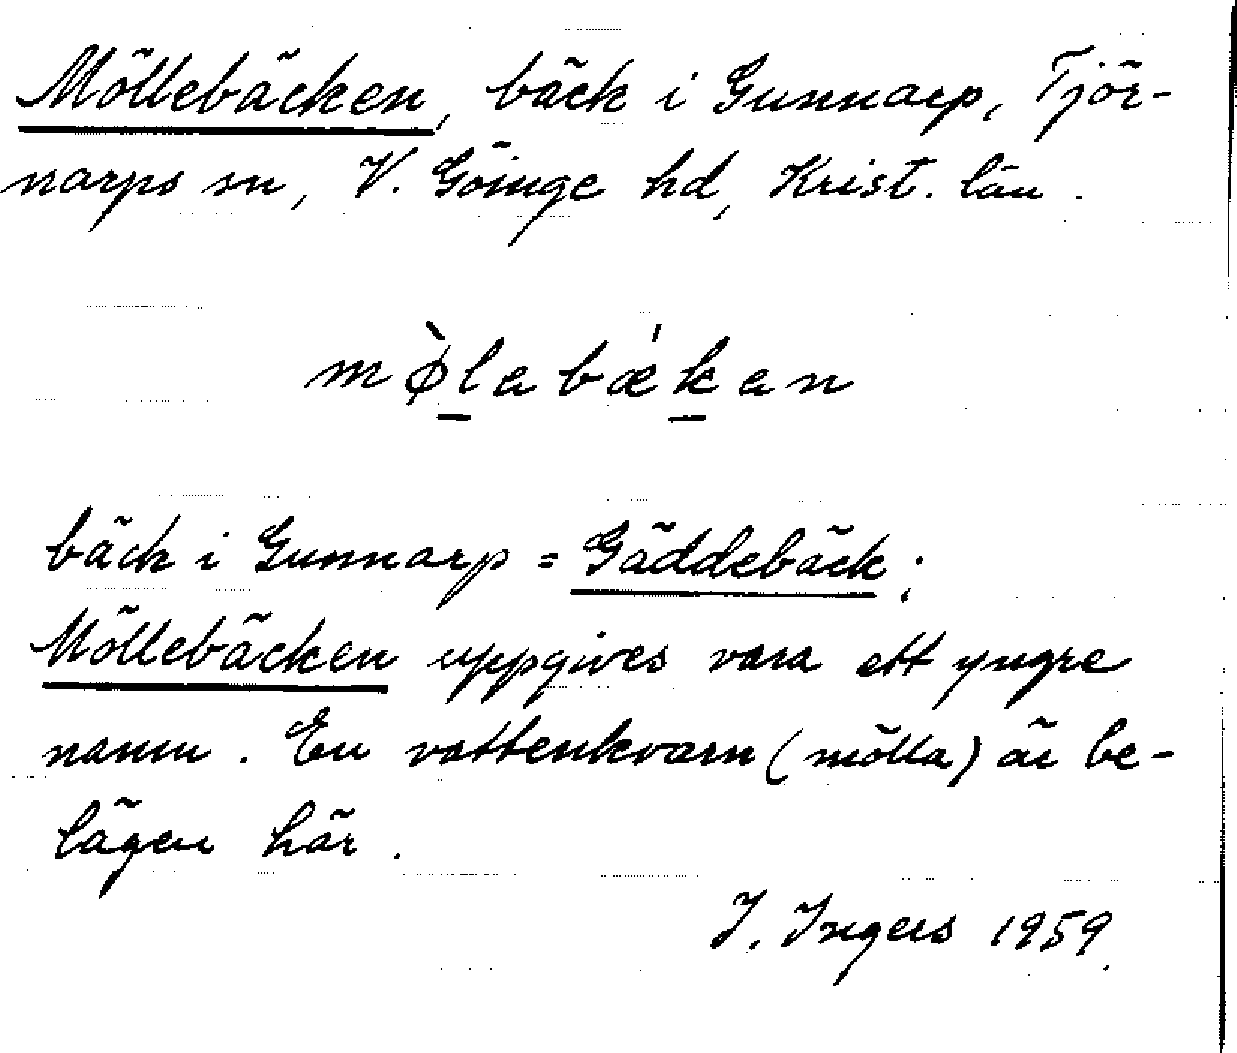 Möllebäcken, bäck i Gunnarp, Tjör-
narps sn, V. Göinge hd, Krist. län.
mø̀l̲abǽk̲an
bäck i Gunnarp = Gäddebäck;
Möllebäcken uppgives vara ett yngre
namn. En vattenkvarn (mölla) är be-
lägen här.
I. Ingers 1959.